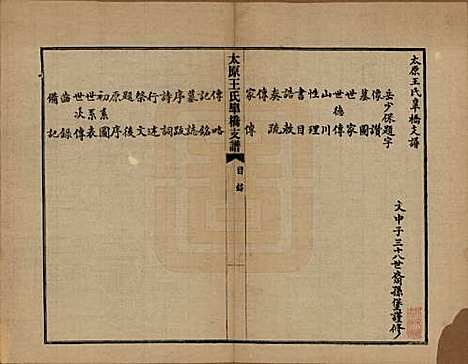 太原王氏皐橋支譜
岳少保題字
像讚
墓圖
世家
世德傳
山川
性理
書目
誥敕
奏疏
傳
家傳
文中子三十八世裔孫堡謹修
太原王氏皐橋支譜
目錄
傳略
記銘
墓誌
序跋
詩詞
行述
祭文
題後
原序
初系圖
世系表
世次傳
齒錄
備記